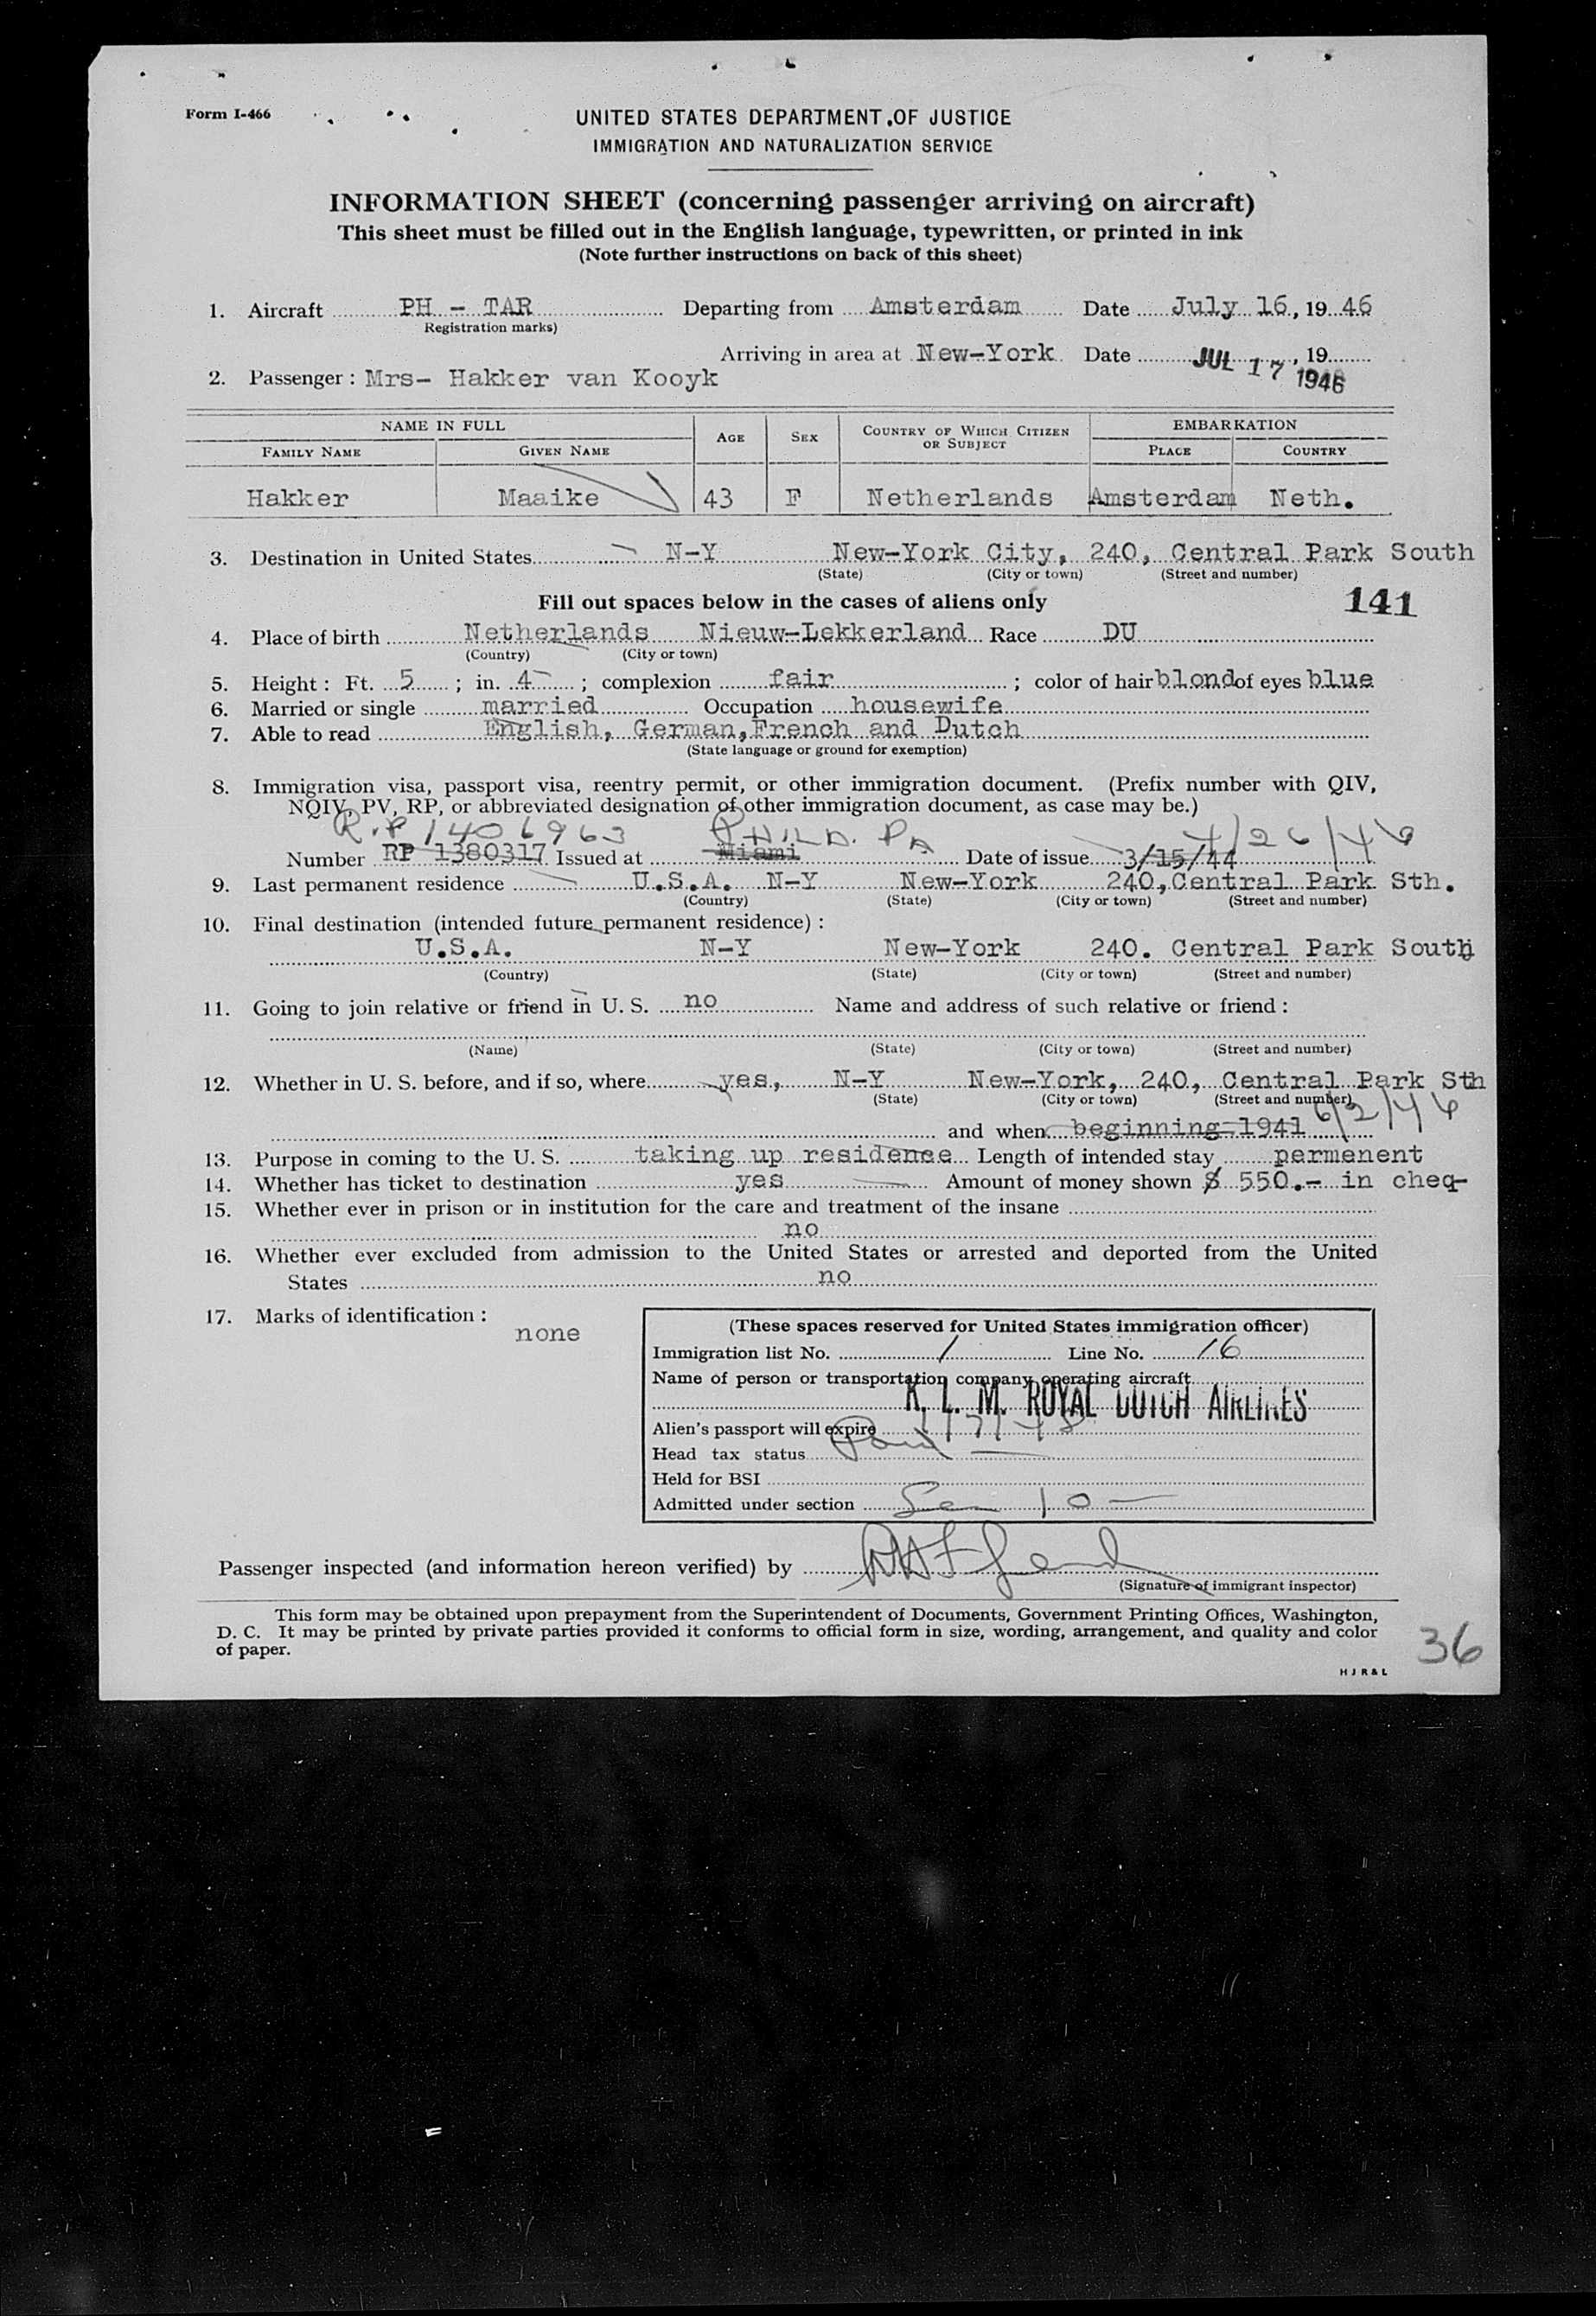 Form I-466
UNITED STATES DEPARTMENT OF JUSTICE
IMMIGRATION AND NATURALIZATION SERVICE
INFORMATION SHEET (concerning passenger arriving on aircraft)
This sheet must be filled out in the English language, typewritten, or printed in ink
(Note further instructions on back of this sheet)
1. Aircraft PH - TAR Departing from Amsterdam Date July 16, 19 46
(Registration marks)
Arriving in area at New-York Date JUL 17 1946, 19
2. Passenger : Mrs- Hakker van Kooyk
NAME IN FULL AGE SEX COUNTRY OF WHICH CITIZEN OR SUBJECT EMBARKATION
FAMILY NAME GIVEN NAME PLACE COUNTRY
Hakker Maaike 43 F Netherlands Amsterdam Neth.
3. Destination in United States N-Y New-York City, 240, Central Park South
(State) (City or town) (Street and number)
Fill out spaces below in the cases of aliens only 141
4. Place of birth Netherlands Nieuw-Lekkerland Race DU
(Country) (City or town)
5. Height : Ft. 5 ; in. 4 ; complexion fair ; color of hair blond of eyes blue
6. Married or single married Occupation housewife
7. Able to read English, German, French and Dutch
(State language or ground for exemption)
8. Immigration visa, passport visa, reentry permit, or other immigration document. (Prefix number with QIV,
NQIV, PV, RP, or abbreviated designation of other immigration document, as case may be.)
R.P 1406963 PHILD. PA 4/26/46
Number RP 1380317 Issued at Miami Date of issue 3/15/44
9. Last permanent residence U.S.A. N-Y New-York 240, Central Park Sth.
(Country) (State) (City or town) (Street and number)
10. Final destination (intended future permanent residence) :
U.S.A. N-Y New-York 240. Central Park South
(Country) (State) (City or town) (Street and number)
11. Going to join relative or friend in U. S. no Name and address of such relative or friend :
(Name) (State) (City or town) (Street and number)
12. Whether in U. S. before, and if so, where yes, N-Y New-York, 240, Central Park Sth
(State) (City or town) (Street and number)
and when beginning-1941 6/2/46
13. Purpose in coming to the U. S. taking up residense Length of intended stay permenent
14. Whether has ticket to destination yes Amount of money shown $ 550.- in cheq-
15. Whether ever in prison or in institution for the care and treatment of the insane
no
16. Whether ever excluded from admission to the United States or arrested and deported from the United
States no
17. Marks of identification :
none
(These spaces reserved for United States immigration officer)
Immigration list No. 1 Line No. 16
Name of person or transportation company operating aircraft
K. L. M. ROYAL DUTCH AIRLINES
Alien's passport will expire
Head tax status Paid
Held for BSI
Admitted under section Sec 10
Passenger inspected (and information hereon verified) by
(Signature of immigrant inspector)
This form may be obtained upon prepayment from the Superintendent of Documents, Government Printing Offices, Washington,
D. C. It may be printed by private parties provided it conforms to official form in size, wording, arrangement, and quality and color
of paper.
36
H J R & L